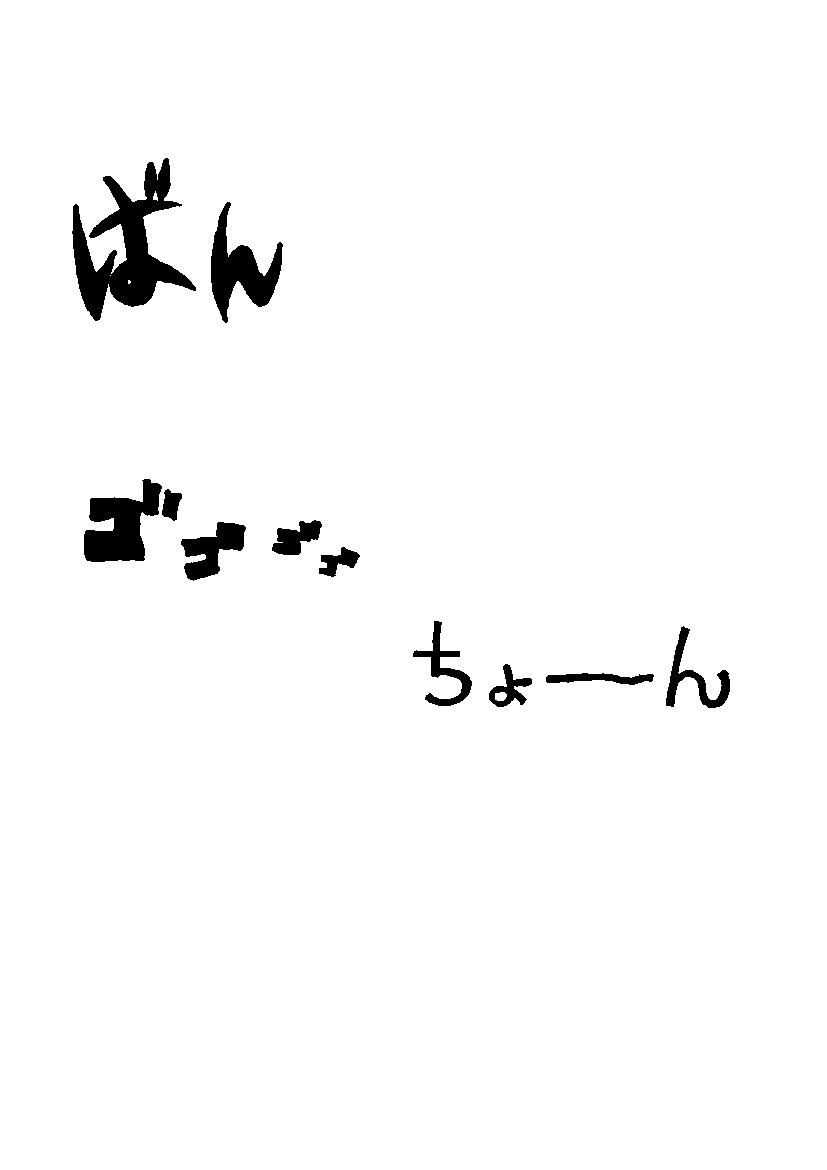 ばん
ゴゴゴゴ
ちょーん